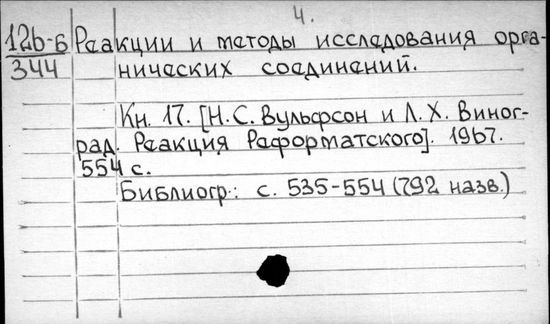 4.
126-Б Реакции и методы исследования орга-
344 нических соединений.
Кн. 17. [Н.С. Вульфсон и Л.Х. Виног-
рад. Реакция Реформатского]. 1967.
554 с.
Библиогр.: с. 535-554 (792 назв.)